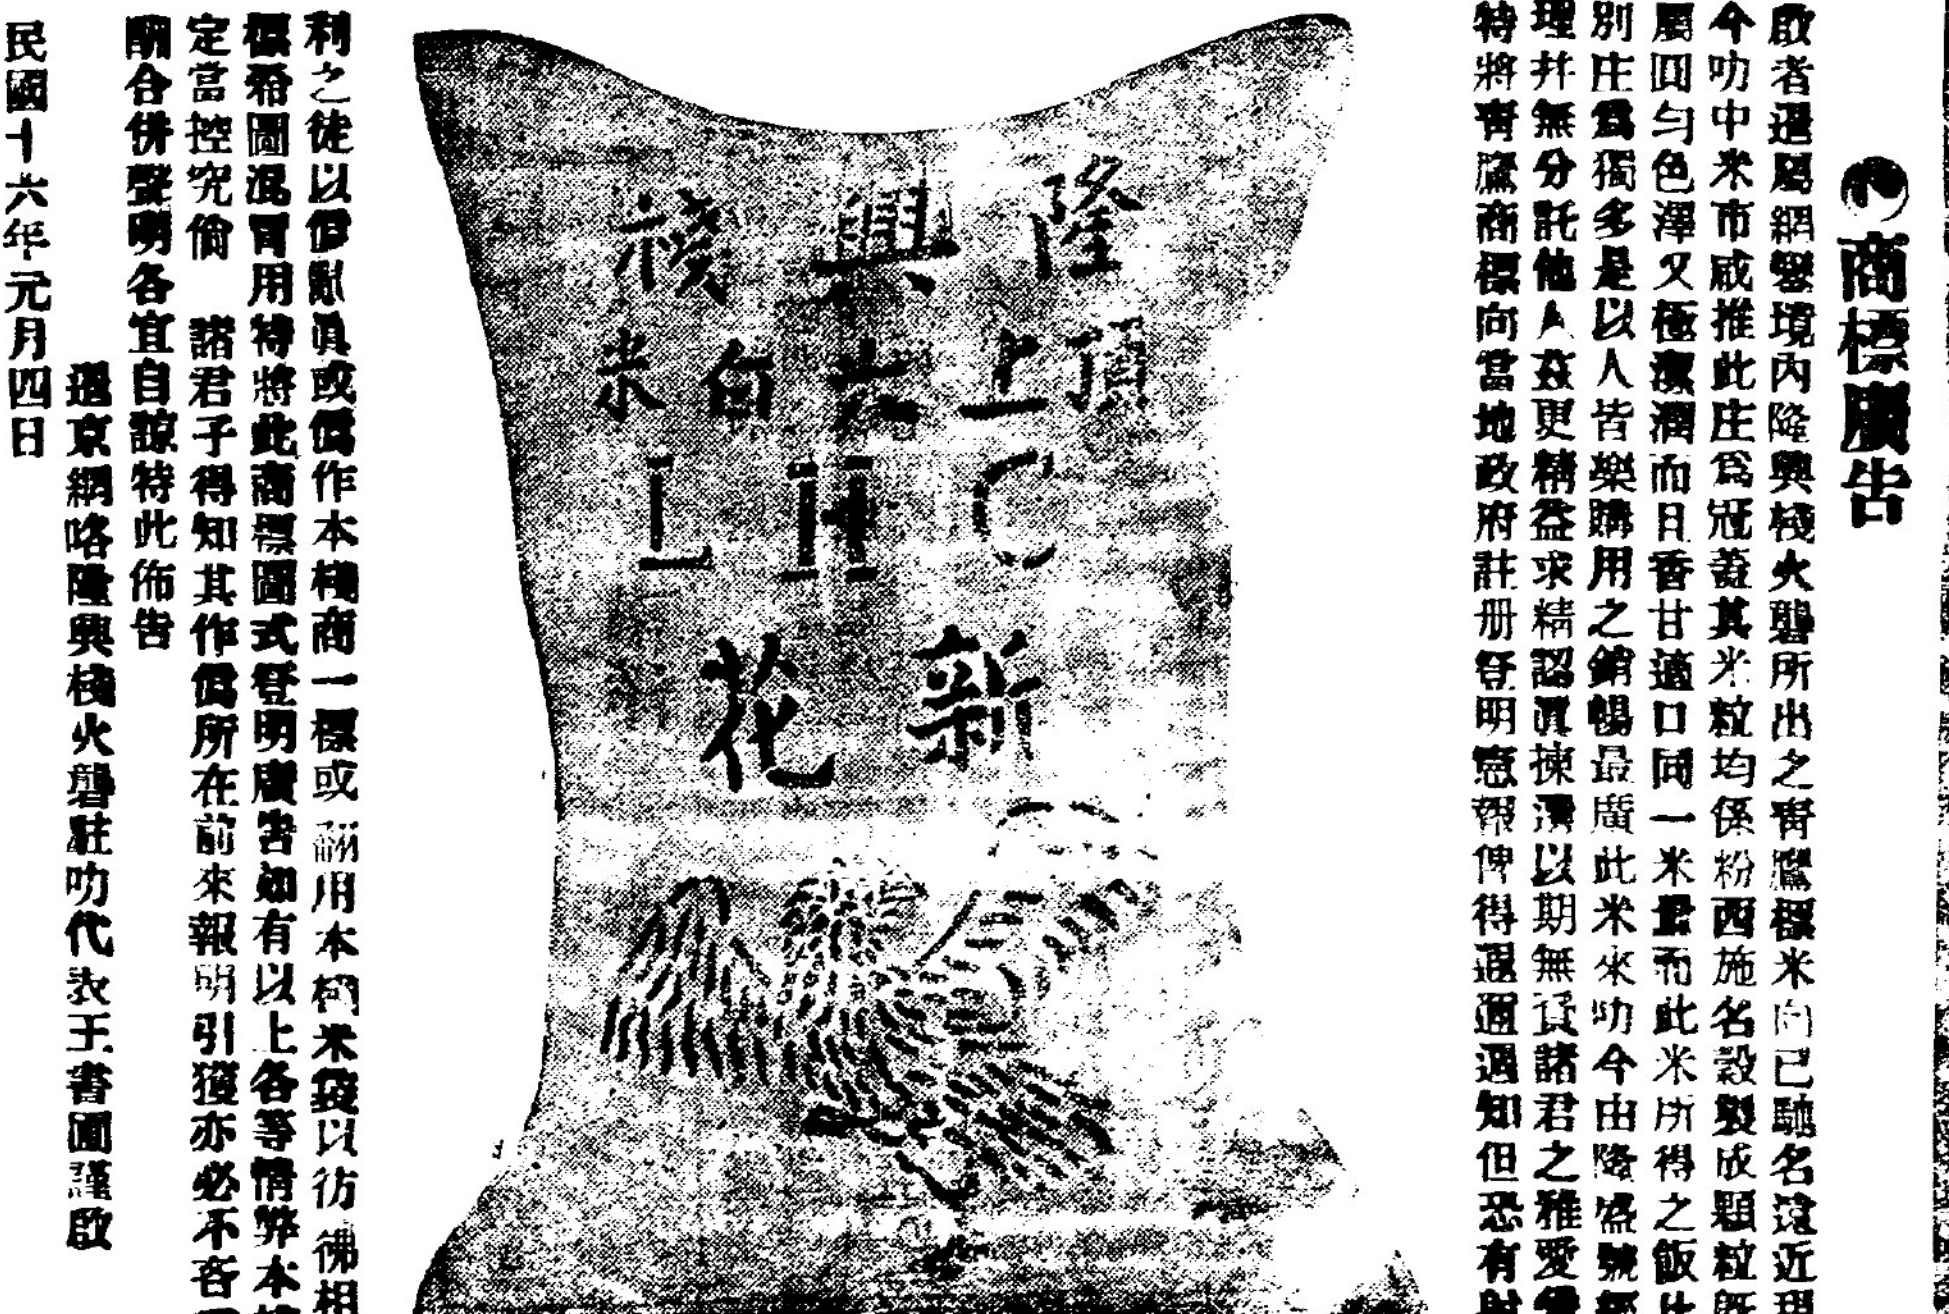 商標廣告
啟者暹屬網𡀔境內隆興棧火礱所出之青鷹標米向已馳名遠近
今叻中米市咸推此庄為冠蓋其米粒均係粉西施名穀製成顆粒
屬圓勻色澤又極潔潤而且香甘適口同一米量而此米所得之飯
別庄為獨多是以人皆樂購用之銷暢最廣此米來叻今由隆盛號
理幷無分託他人茲更精益求精認眞揀選以期無負諸君之雅愛
特將青鷹商標向當地政府註册登明憲報俾得週知但恐有
隆興棧
頂上六白米
C H L
新花
利之徒以假亂眞或僞作本棧商標或用本棧米袋以彷彿相
標希圖混冒用特將此商標圖式登明廣告如有以上各等情弊本
定當控究倘 諸君子得知其作僞所在前來報明引獲亦必不吝
酬合併聲明各宜自諒特此佈告
暹京網咯隆興棧火礱駐叻代表王書圃謹啟
民國十六年元月四日